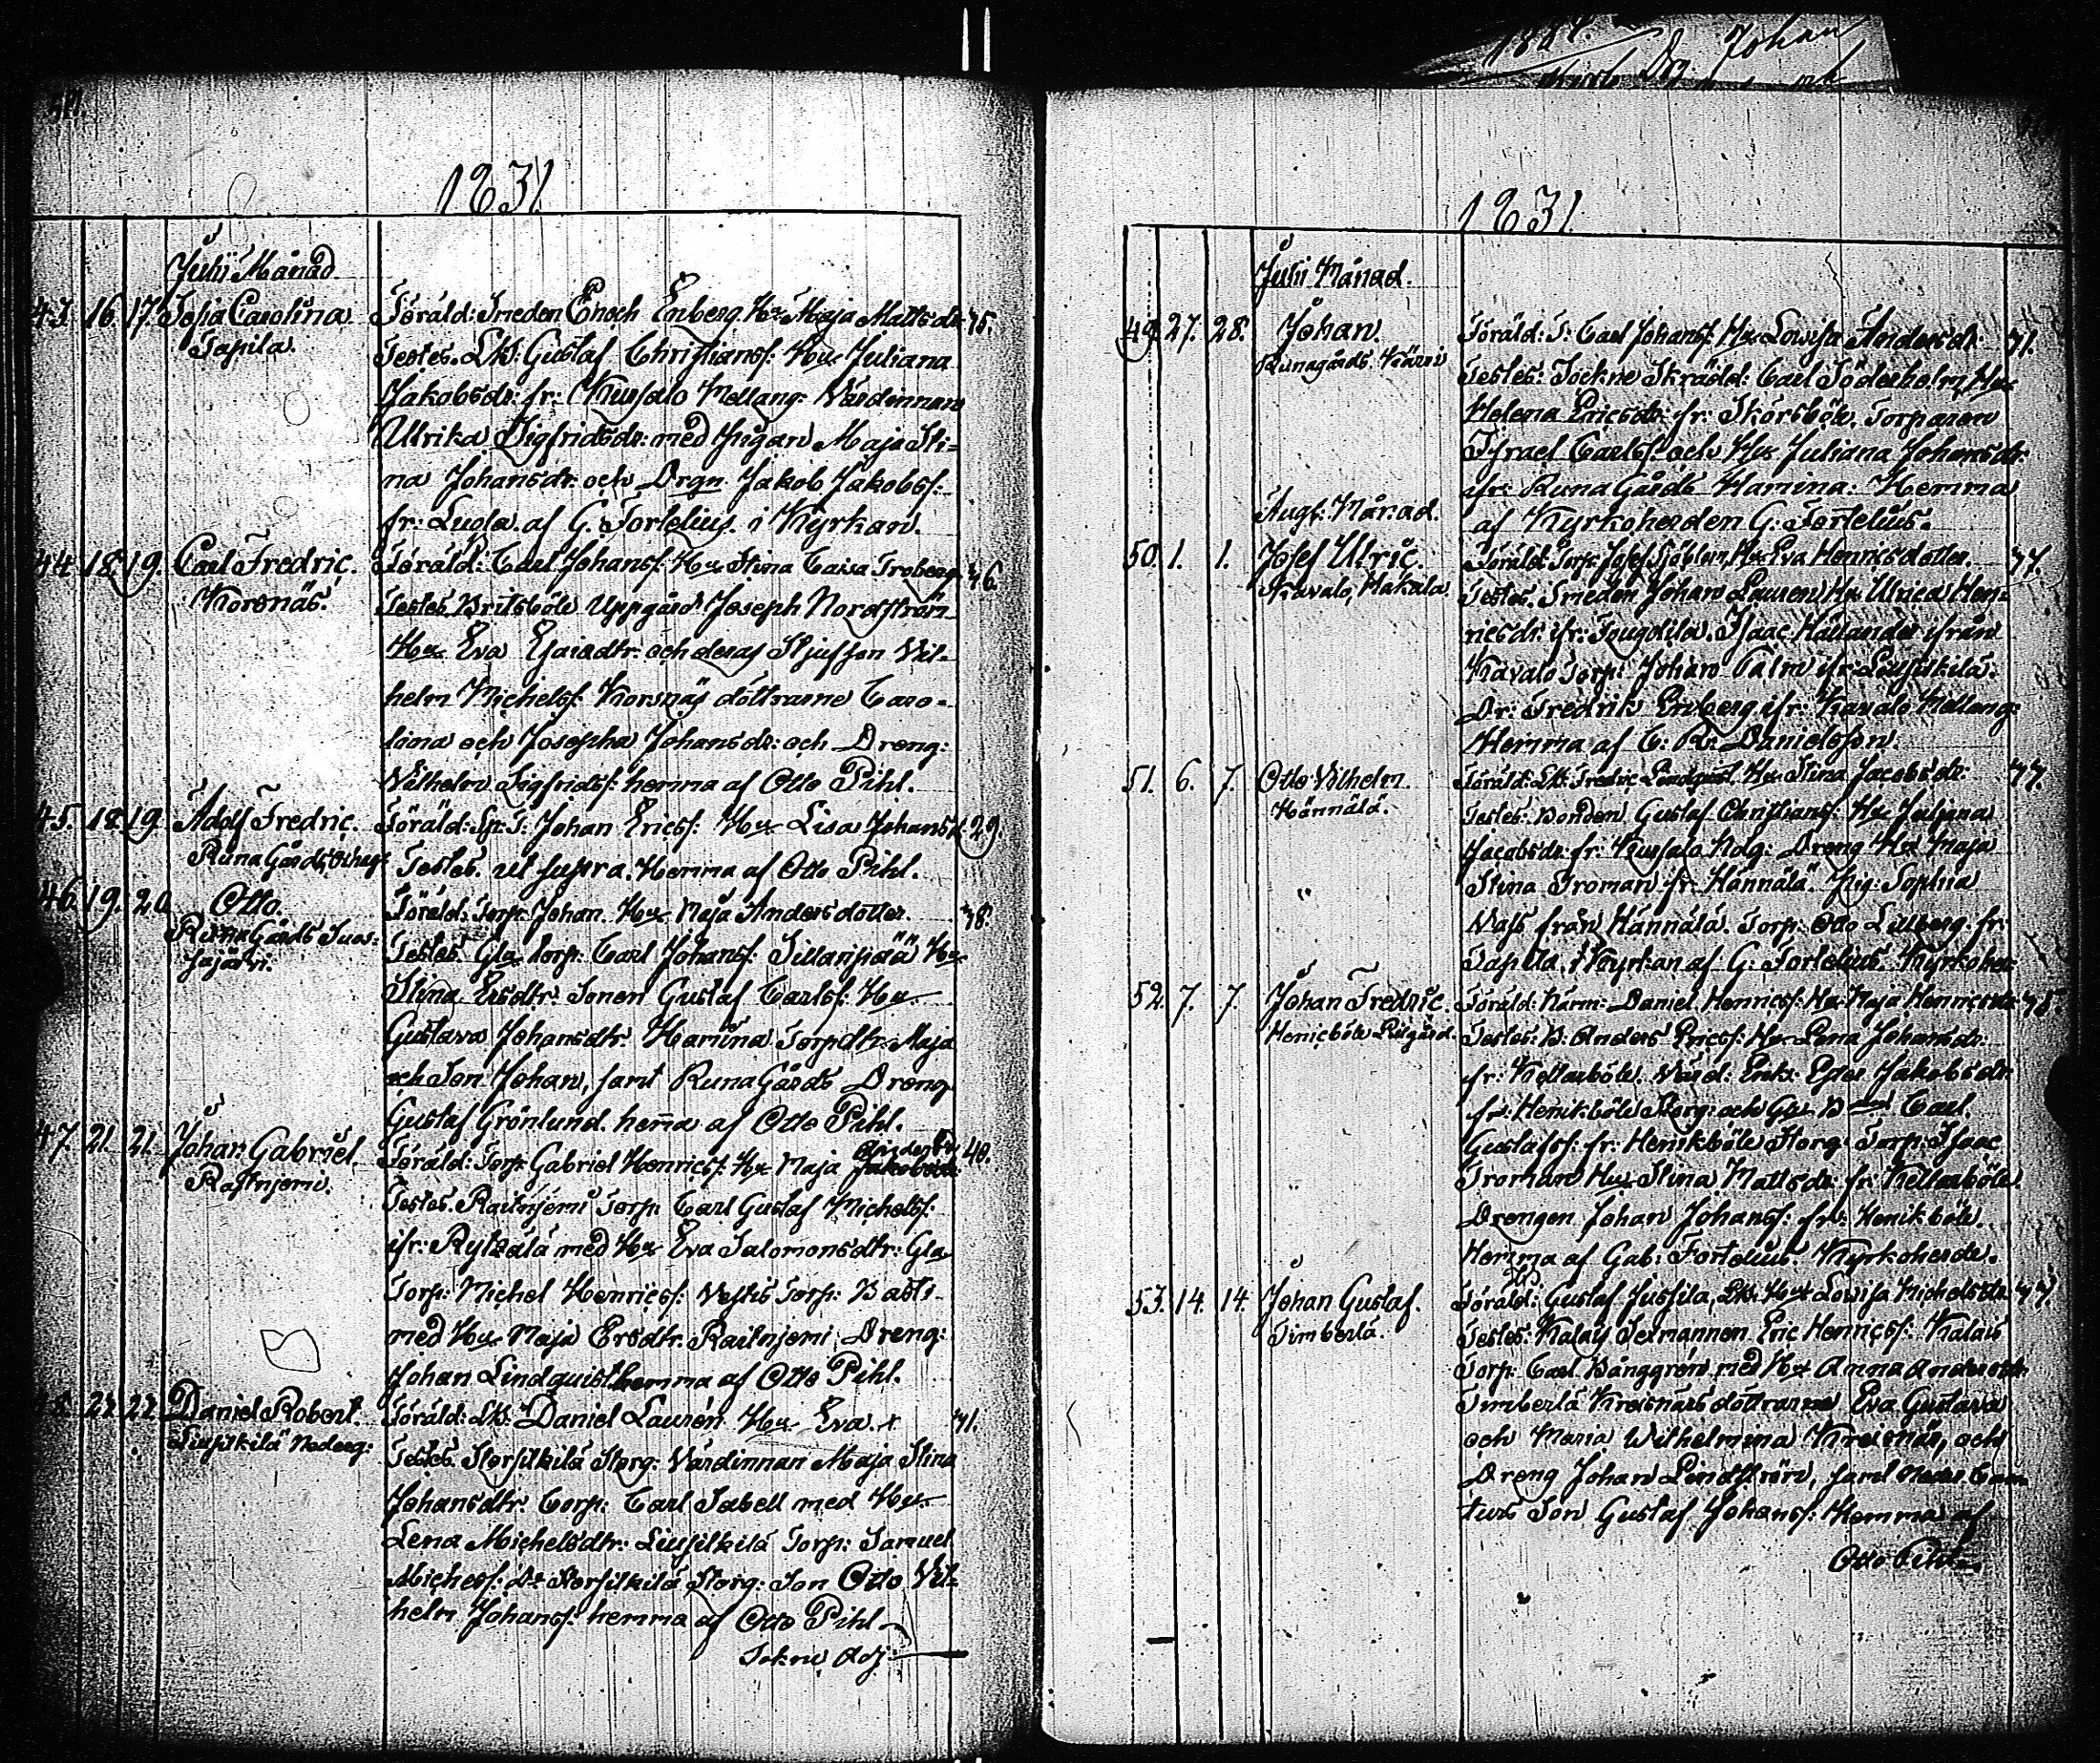 1831
Julii Månad
43. 16. 17. Sofia Carolina Föräld: Smeden Enoch Enberg Hu Maja Mattsdr 35.
Tapila. Testes. Lb: Gustaf Christiansf: Hu Juliana
Jakobsdr: fr: Kursalo Mellang: Värdinnan
Ulrika Sigfridsdr: med Pigan Maja Sti-
na Johansdr: och Drgn Jakob Jakobsf:
fr: af G. Fortelius i Kyrkan.
44. 18. 19. Carl Fredric. Föräld: Carl Johansf: Hu Stina Caisa Troberg 36.
Korsnäs. Testes. Britsböle Uppgård Joseph Nordström
Hu Eva Esaiadtr: och deras Stjufson Vil-
helm Michelsf: Korsnäs döttrarne Caro-
lina och Josepha Johansdr: och Dreng:
Vilhelm Sigfridsf: hemma af Otto Pihl.
45. 18. 19. Adolf Fredric. Föräld: Johan Ericsf: Hu Lisa Johansd 29.
Runa Gårds Testes. ut supra. Hemma af Otto Pihl.
46. 19. 20. Otto. Föräld: Torp: Johan. Hu Maja Andersdotter. 38.
Runa Gårds Suo- Testes. Gla Torp: Carl Johansf: Sillanpää Hu
jajärvi. Stina Ersdtr. Sonen Gustaf Carlsf: Hu
Gustava Johansdtr. Hamina Torpdtr: Maja
och Son Johan, samt Runa Gårds Dreng
Gustaf Grönlund. hema af Otto Pihl.
47. 21. 21. Johan Gabriel. Föräld: Torp: Gabriel Henricsf: Hu Maja Jakobsdr 40.
Rastnjemi. Testes. Raitnjemi Torp: Carl Gustaf Michelsf:
ifr: Rytkälä med Hu Eva Salomonsdtr: Gla
Torp: Michel Henricsf: Torp: Basti
med Hu Maja Ersdtr. Raitnjemi Dreng:
Johan Lindquist hemma af Otto Pihl.
48. 22. 22. Daniel Robert. Föräld: Lb: Daniel Laurén Hu Eva x 41.
Liusilkilä Nederg: Testes. Storsilkilä Storg: Värdinnan Maja Stina
Johansdtr: Torp: Carl Sabell med Hu
Lena Michelsdtr: Liusilkilä Torp: Samuel
Michelsf: Dr Storsilkilä Storg: Son Otto Vil-
helm Johansf: hemma af Otto Pihl
Sokne Adj:
Johan
1831
Julii Månad.
49. 27. 28. Johan. Föräld: S: Carl Johansf Hu Lovisa Andersdr 41.
Runagårds Testes: Sockne Skrädd: Carl Söderholm, Hu
Helena Ericsdr: fr: Skörsböle. Torparen
Israel Carlsf: och Hu Juliana Johansdr
ifr: Runa Gårds Hamina: Hemma
Augt: Månad. af Kyrkoherden G: Fortelius.
50. 1. 1. Josef Ulric. Föräld: Torp: Josef Sjöblom, Hu Eva Henricsdotter. 37.
Kavalo, Makala Testes. Smeden Johan Lauren Hu Ulrica Hen-
ricsdr: ifr: Isaac Hallander ifrån
Kavalo Torp: Johan Palm ifr: Liusilkilä.
Dr: Fredrik Enberg ifr: Kavalo Mellang:
Hemma af C: Danielsson.
51. 6. 7. Otto Vilhelm. Föräld: Lb: Fredric Lindquist. Hu Stina Jacobsdr: 37.
Hännälä. Testes: Bonden Gustaf Christiansf: Hu Juliana
Jacobsdr: fr: Kursalo Mdg: Dreng Hu Maja
Stina Troman fr: Hännälä. Pig: Sophia
från Hännälä. Torp: Otto Lilberg: fr:
Tapila, i Kyrkan af G: Fortelius. Kyrkoher
52. 7. 7. Johan Fredric. Föräld: Daniel Henricsf: Hu: Maja Henricsdr 35.
Henicböle Lillgård. Testes: B: Anders Ericsf: Hu Lena Johansdr:
fr: Kettarböle. Värd: Enk: Ester Jakobsdr
fr: Henikböle Storg: och Carl
Gustafsf: fr: Henikböle Storg: Torp: Isaac
Troman Hu Stina Mattsdr: fr: Kettarböle
Drengen Johan Johansf: fr: Henikböle.
Hemma af Gab: Fortelius. Kyrkoherde.
53. 14. 14. Johan Gustaf. Föräld: Gustaf Jussila, Lb: Hu Lovisa Michelsdr 37.
Simberlä. Testes: Kalais Sexmannen Eric Henricsf: Kalais
Torp: Carl Bänggren med Hu Anna Andersdr
Simberlä Kreisnäs döttrarne Eva Gustava
och Maria Wilhelmina Kreisnäs, och
Dreng Johan Lindström, samt
Son Gustaf Johansf: Hemma af
Otto Pihl.